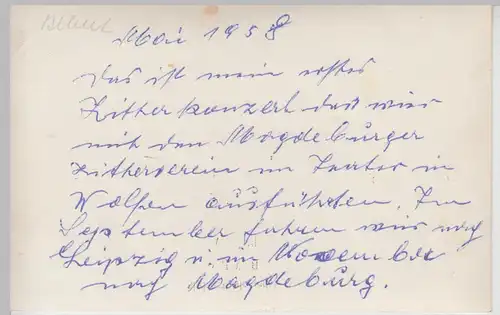 Mai 1958
Das ist mein erstes
Zitterkonzert das wir
mit den Magdeburger
Zitherverein im Teater in
Wolfen ausführten. Im
September fuhren wir nag
Leipzig u. im November
nag Magdeburg.